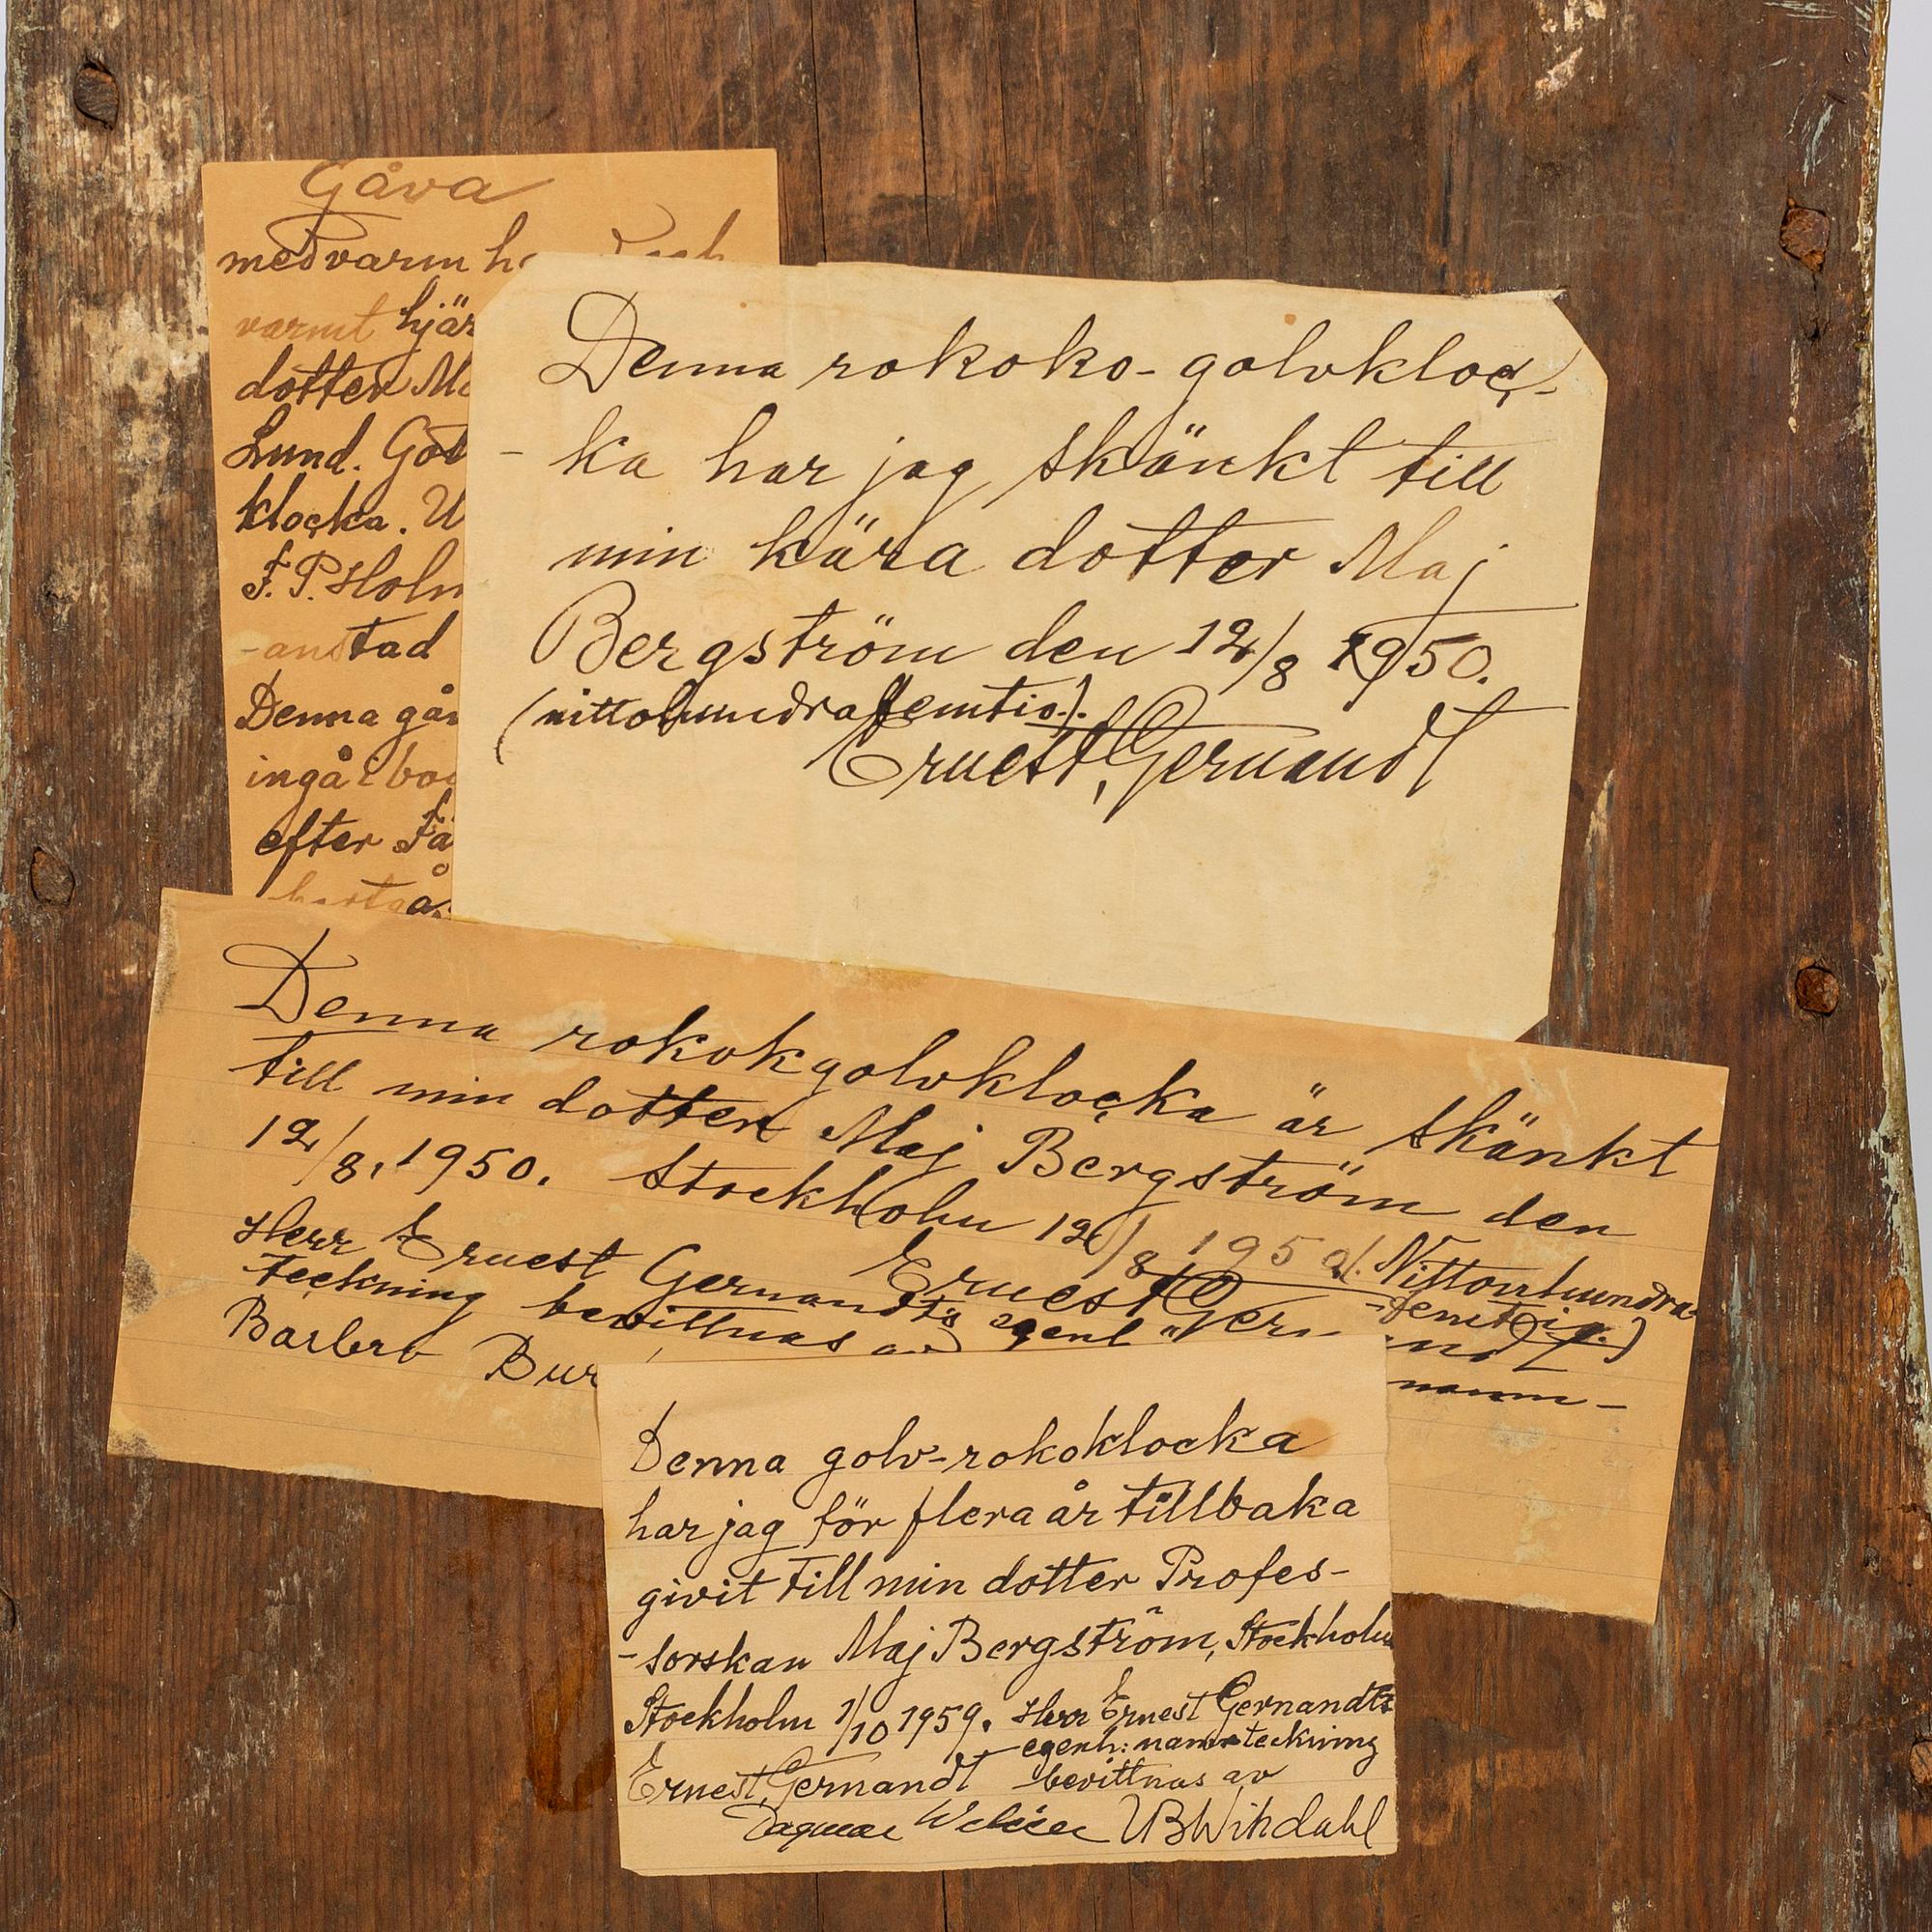 Gåva
med varm
varmt hjär
dotter
Lund. Got
klocka. U
F. P. Holm
-anstad
Denna gåv
ingå i
efter Få
Denna rokoko-golvkloc-
-ka har jag skänkt till
min kära dotter Maj
Bergström den 12/8 1950.
(nittohundrafemtio).
Ernest Gernandt
Denna rokokgolvklocka är skänkt
till min dotter Maj Bergström den
12/8, 1950. Stockholm 12/8 1950. (Nittonhundra-
-femtio.)
Ernest Gernandt
Herr Ernest Gernandts egenh namn-
teckning bevittnas av
Barbro Bur
Denna golv-rokoklocka
har jag för flera år tillbaka
givit till min dotter Profes-
-sorskan Maj Bergström, Stockholm
Stockholm 1/10 1959. Herr Ernest Gernandts
egenh: namnteckning
Ernest Gernandt bevittnas av
Dagmar UBWihdahl